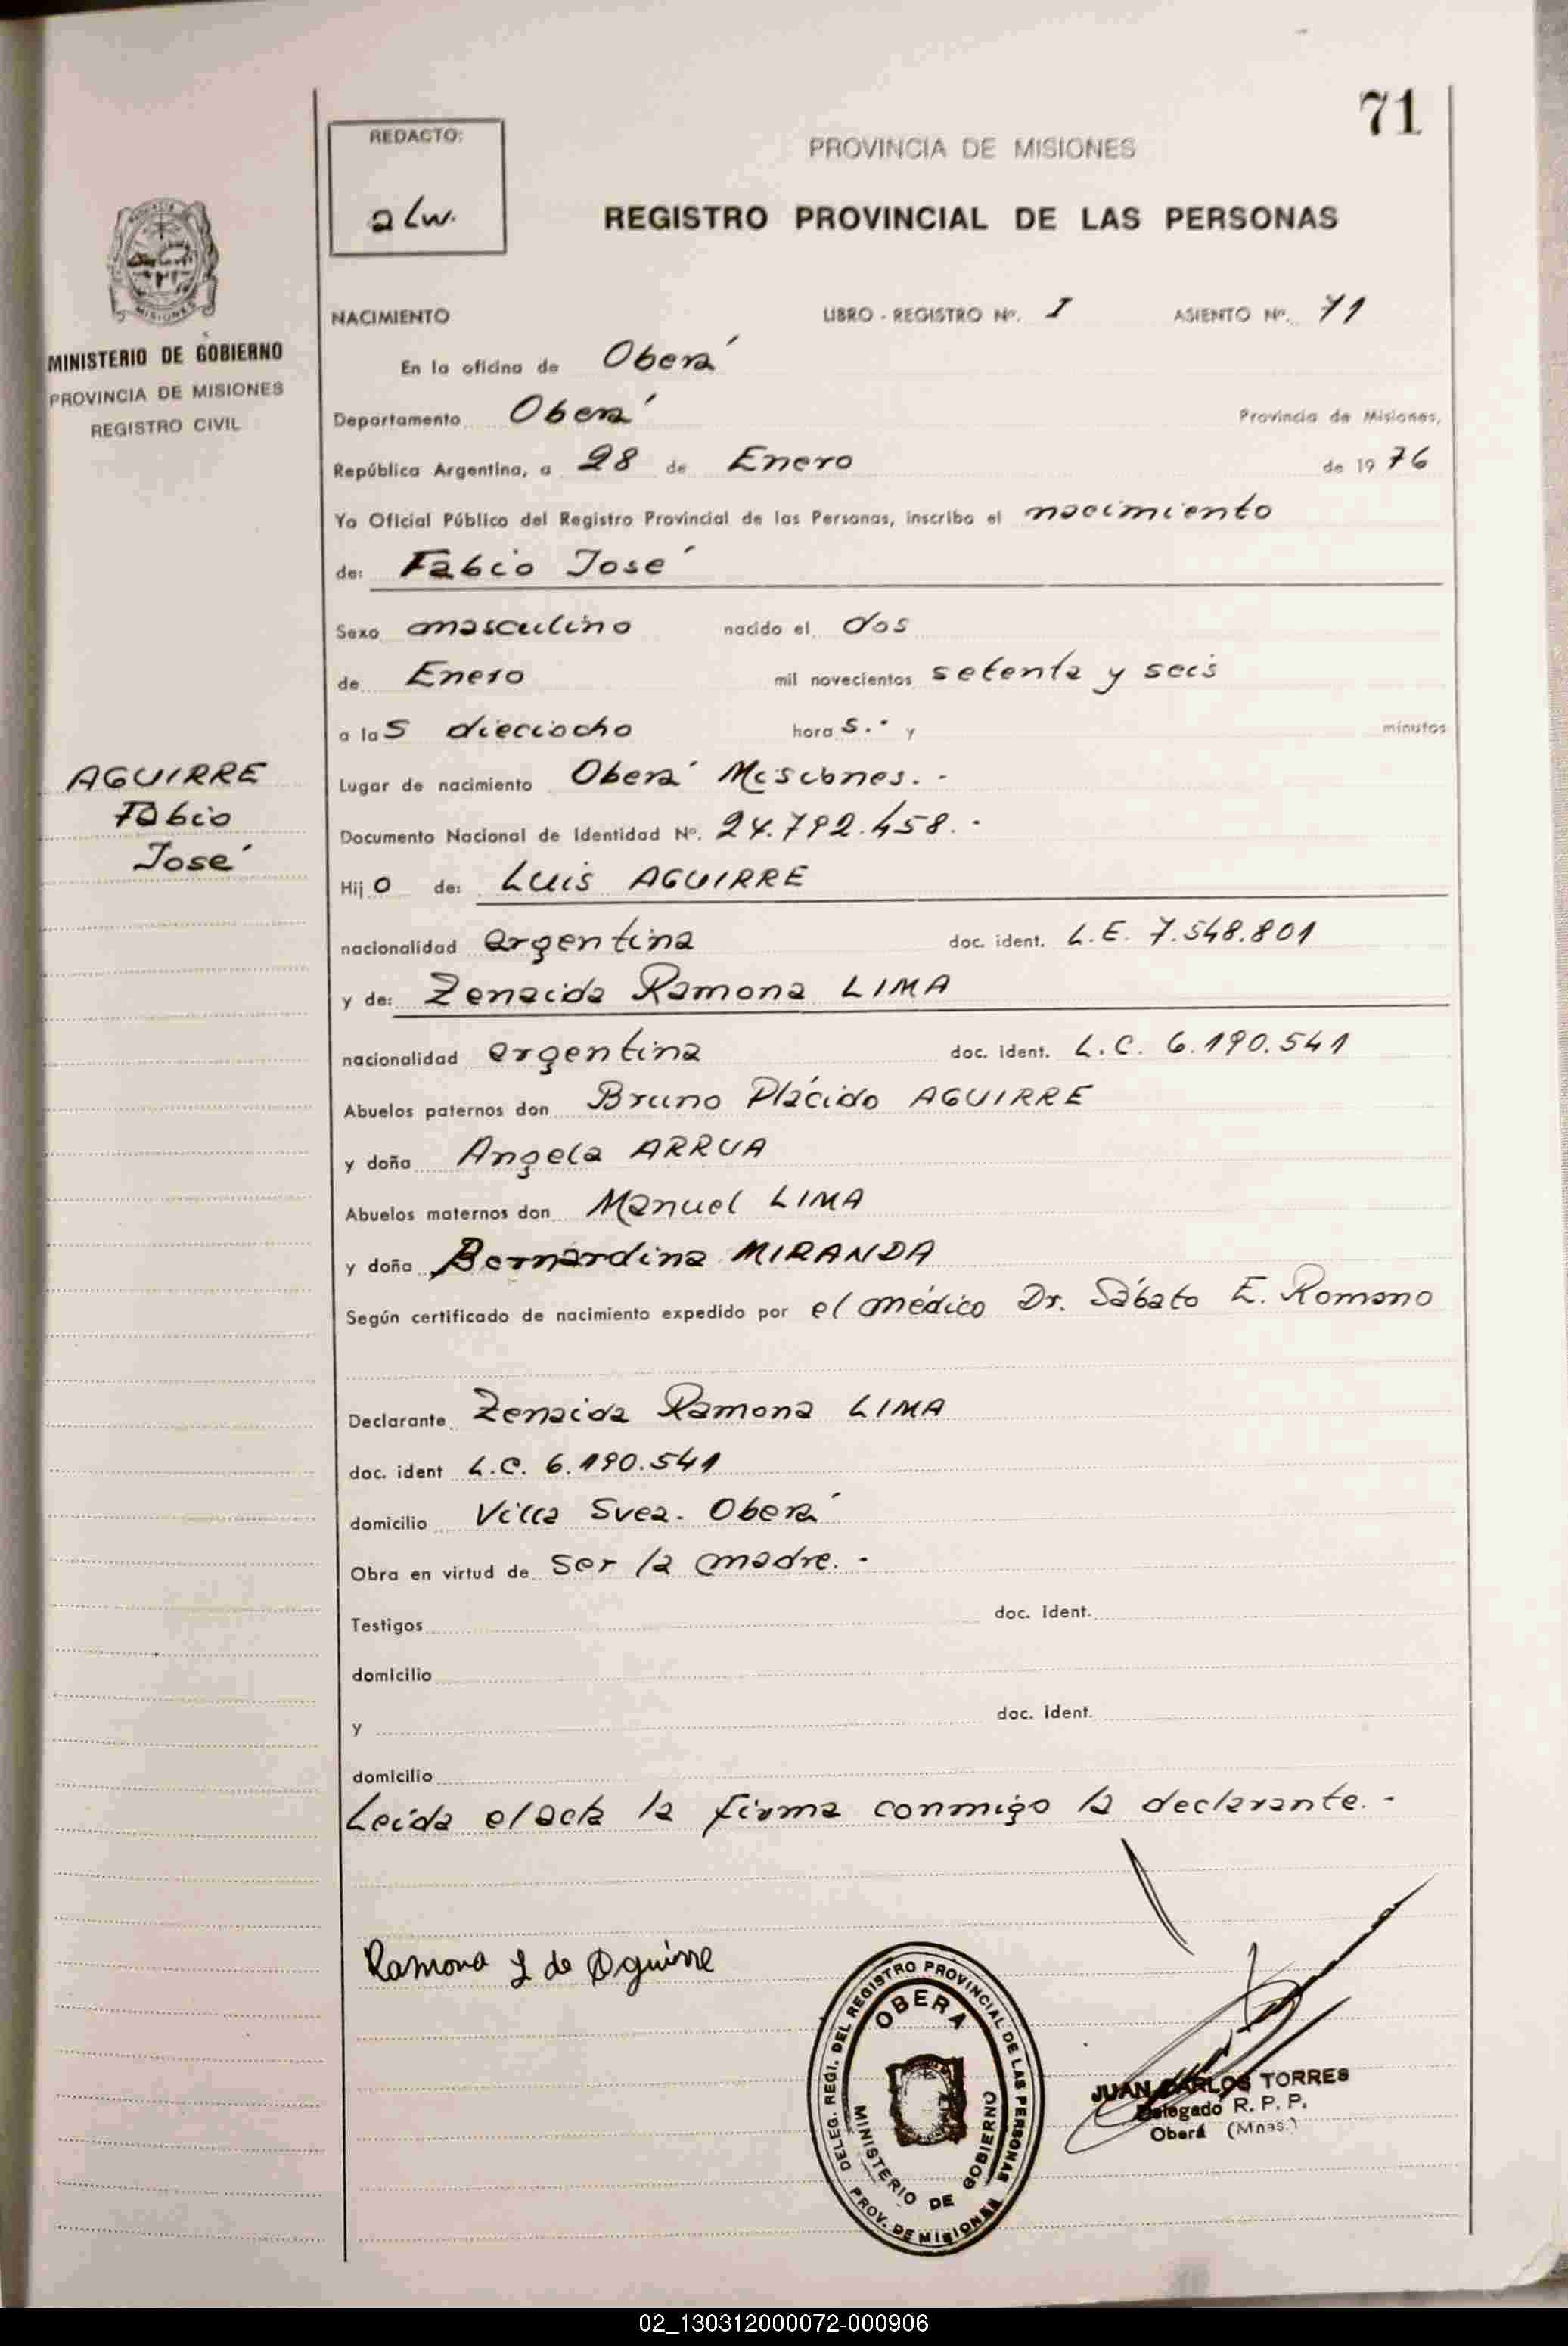 71
REDACTO:
alw.
PROVINCIA DE MISIONES
REGISTRO PROVINCIAL DE LAS PERSONAS
MISIONES
MINISTERIO DE GOBIERNO
PROVINCIA DE MISIONES
REGISTRO CIVIL
NACIMIENTO LIBRO - REGISTRO Nº. I ASIENTO Nº. 71
En la oficina de Oberá
Departamento Oberá Provincia de Misiones,
República Argentina, a 28 de Enero de 1976
Yo Oficial Público del Registro Provincial de las Personas, inscribo el nacimiento
de: Fabio José
Sexo masculino nacido el dos
de Enero mil novecientos setenta y seis
a las dieciocho horas.- y minutos
AGUIRRE
Fabio
José
Lugar de nacimiento Oberá Misiones.-
Documento Nacional de Identidad Nº. 24.792.458.-
Hijo de: Luis AGUIRRE
nacionalidad argentina doc. ident. L.E. 7.548.801
y de: Zenaida Ramona LIMA
nacionalidad argentina doc. ident. L.C. 6.190.541
Abuelos paternos don Bruno Plácido AGUIRRE
y doña Angela ARRUA
Abuelos maternos don Manuel LIMA
y doña Bernardina MIRANDA
Según certificado de nacimiento expedido por el médico Dr. Sábato E. Romano
Declarante Zenaida Ramona LIMA
doc. ident L.C. 6.190.541
domicilio Villa Svea. Oberá
Obra en virtud de ser la madre.-
Testigos doc. ident.
domicilio
y doc. ident.
domicilio
Leída el acta la firma conmigo la declarante.-
Ramona L de Aguirre
DELEG. REGI. DEL REGISTRO PROVINCIAL DE LAS PERSONAS
OBERA
MINISTERIO DE GOBIERNO
PROV. DE MISIONES
JUAN CARLOS TORRES
Delegado R. P. P.
Oberá (Mnes.)
02_130312000072-000906